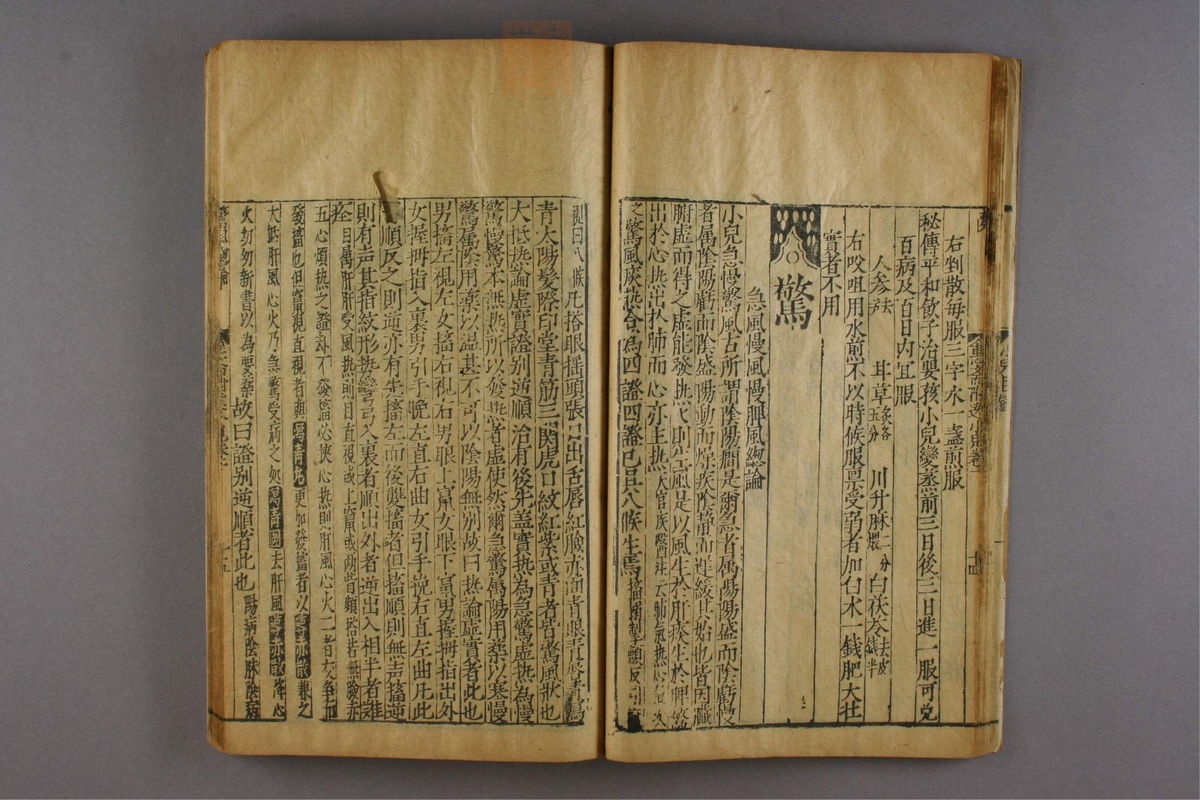 右剉散每服三字水一盞煎服
秘傳平和飲子治嬰孩小兒變蒸前三日後三日進一服可免
百病及百日内宜服
人參 去 甘草 炙各五分 川升麻 二分 白茯苓 去皮錢半
右㕮咀用水煎不以時候服禀受弱者加白术一錢肥大壯
實者不用
驚
急風慢風慢脾風總論
小兒急慢驚風古所謂陰陽癇是爾急者屬陽陽盛而陰虧慢
者屬陰陽虧而陰盛陽動而燥疾陰靜而遲緩其始也皆因臟
腑虛而得之虛能發熱熱則生風是以風生於肝痰生於脾驚
出於心熱出於肺而心亦主熱
之驚風痰熱合為四證四證已具八候生焉
視曰八候凡搭眼搖頭張口出舌唇紅臉赤面青眼青唇青瀉
青太陽髮際印堂青筋三關虎口紋紅紫或青者皆驚風狀也
大抵熱論虛實證别逆順治有後先蓋實熱為急驚虛熱為慢
驚慢驚本無熱所以發熱者虛使然爾急驚屬陽用藥以寒慢
驚屬陰用藥以温甚不可以陰陽無别故曰熱論虛實者此也
男搐左視左女搐右視右男眼上竄女眼下竄男握拇指出外
女握拇指入裏男引手挽左直右曲女引手挽右直左曲凡此
順反之則逆亦有先搐左而後雙搐者但搐順則無声搐逆
則有声其指紋形勢彎弓入裏者順出外者逆出入相半者難
痊 目屬肝肝受風熱則目直視或上竄或两眥頻搭若無臉赤
五心煩熱之證却不發搐必挾心熱則肝風心火二者交争而
發搐也但竄視直視者與瀉青丸更加發搐者以導赤散兼之
大抵肝風心火乃急驚受病之処瀉青圓去肝風導赤散降心
火勿勿新書以為要藥 故曰證别逆順者此也 陽病陰脉陰病